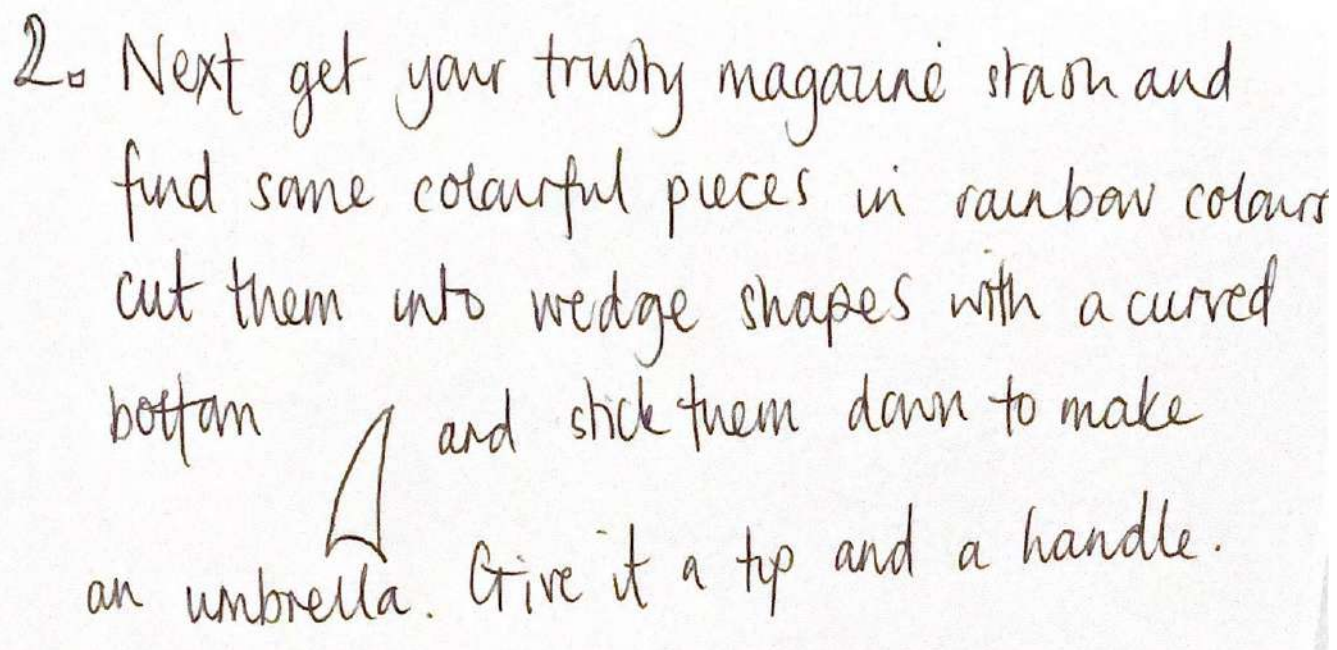 2. Next get your trusty magazine stash and
find some colourful pieces in rainbow colours
cut them into wedge shapes with a curved
bottom and stick them down to make
an umbrella. Give it a tip and a handle.